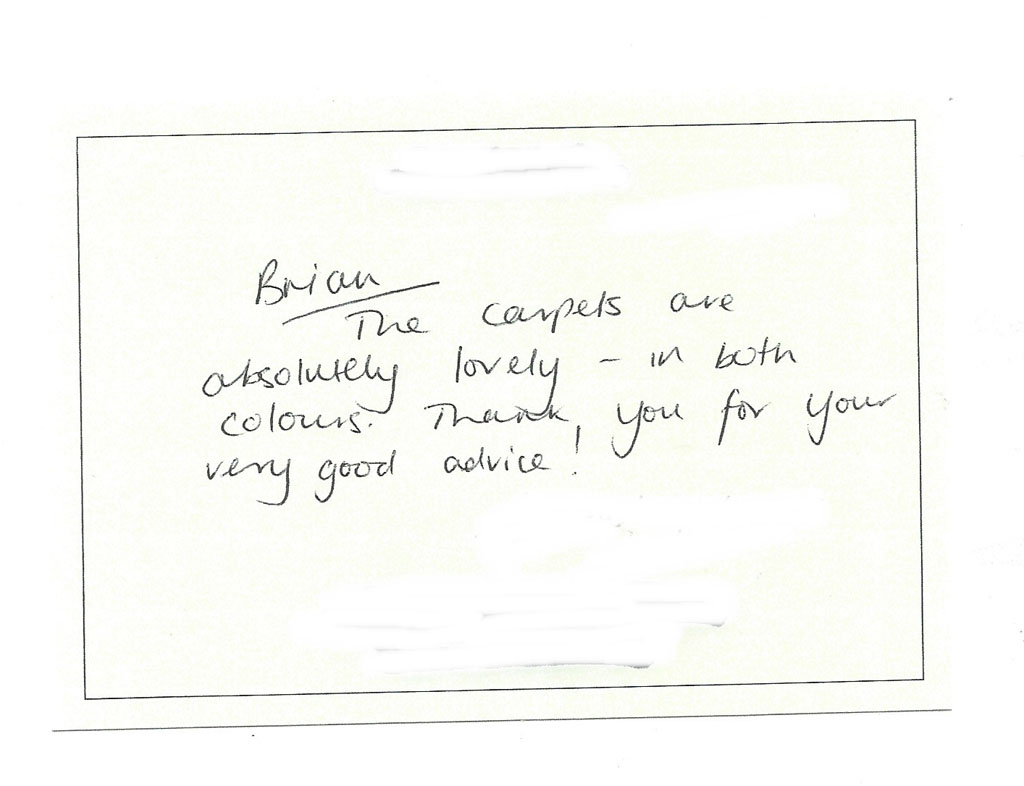 Brian
The carpets are
absolutely lovely - in both
colours. Thank you for your
very good advice!